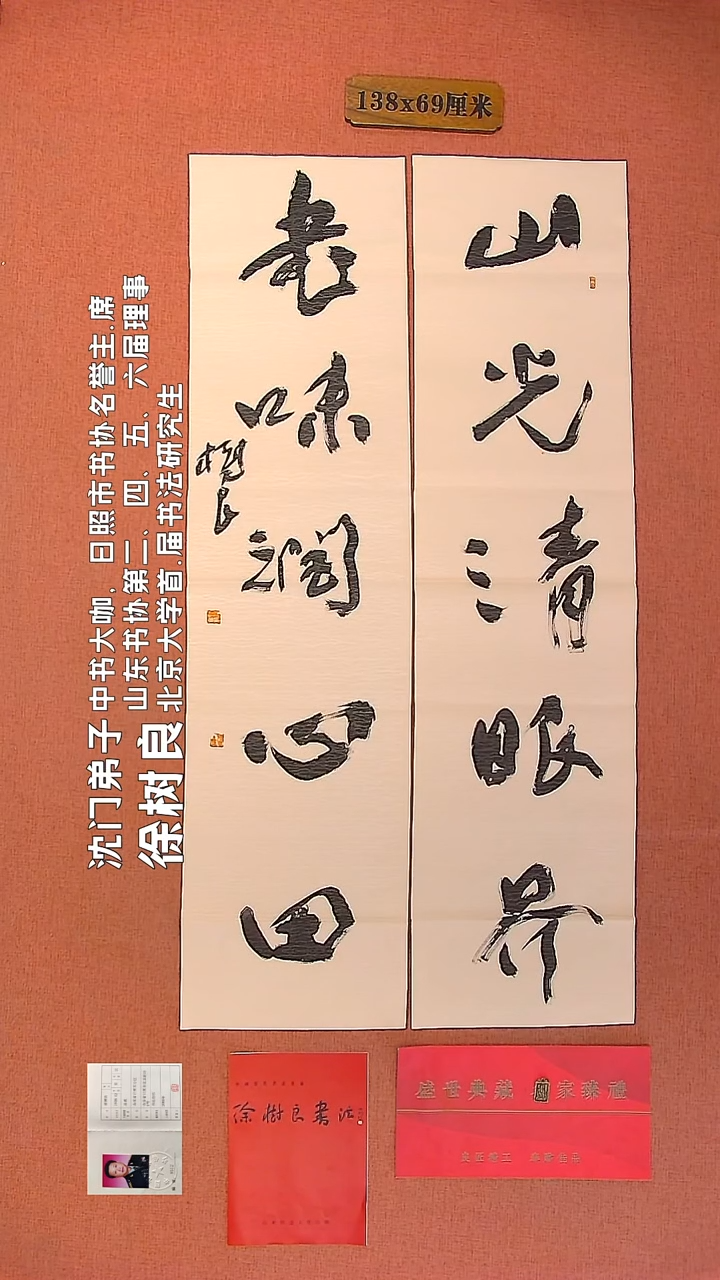 138x69厘米
山光清眼界
書味潤心田
樹良
沈门弟子
徐树良
中书大咖，日照市书协名誉主.席
山东书协第二、四、五、六届理事
北京大学首.届书法研究生
徐樹良書法
盛世典藏 國家臻禮